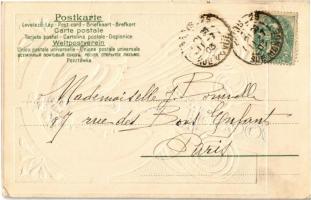 Postkarte
Levelező-Lap - Post-card - Briefkaart - Brefkort
Carte postale
Tarjeta postal - Cartolina postale - Dopisnice
Weltpostverein
Union postale universelle - Unione postale universale
Mademoiselle J.
17 rue des Bons Enfants
Paris